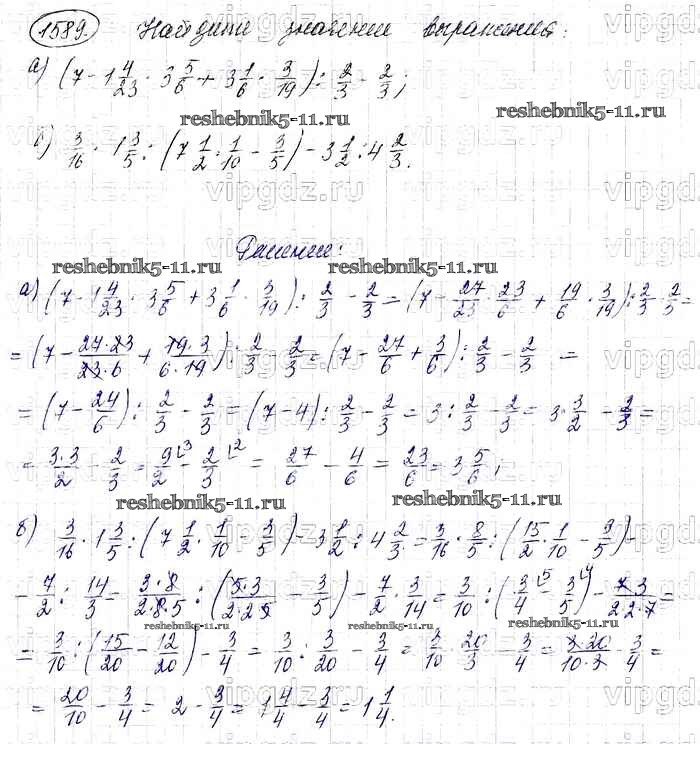 1589. Найдите значении выражения:
а) (7 - 1 4/23 · 3 5/6 + 3 1/6 · 3/19) : 2/3 - 2/3;
reshebnik5-11.ru
reshebnik5-11.ru
б) 3/16 · 1 3/5 : (7 1/2 · 1/10 - 3/5) - 3 1/2 : 4 2/3.
vipgdz.ru
Решение:
reshebnik5-11.ru reshebnik5-11.ru
а) (7 - 1 4/23 · 3 5/6 + 3 1/6 · 3/19) : 2/3 - 2/3 = (7 - 27/23 · 23/6 + 19/6 · 3/19) : 2/3 - 2/3 =
= (7 - 27·23/23·6 + 19·3/6·19) : 2/3 - 2/3 = (7 - 27/6 + 3/6) : 2/3 - 2/3 =
= (7 - 24/6) : 2/3 - 2/3 = (7 - 4) : 2/3 - 2/3 = 3 : 2/3 - 2/3 = 3 · 3/2 - 2/3 =
= 3·3/2 - 2/3 = 9/2 - 2/3 = 27/6 - 4/6 = 23/6 = 3 5/6;
reshebnik5-11.ru reshebnik5-11.ru
б) 3/16 · 1 3/5 : (7 1/2 · 1/10 - 3/5) - 3 1/2 : 4 2/3 = 3/16 · 8/5 : (15/2 · 1/10 - 3/5) -
- 7/2 : 14/3 = 3·8/2·8·5 : (5·3/2·2·5 - 3/5) - 7/2 · 3/14 = 3/10 : (3/4 - 3/5) - 7·3/2·2·7 =
reshebnik5-11.ru reshebnik5-11.ru
= 3/10 : (15/20 - 12/20) - 3/4 = 3/10 : 3/20 - 3/4 = 3/10 · 20/3 - 3/4 = 3·20/10·3 - 3/4 =
= 20/10 - 3/4 = 2 - 3/4 = 1 4/4 - 3/4 = 1 1/4.